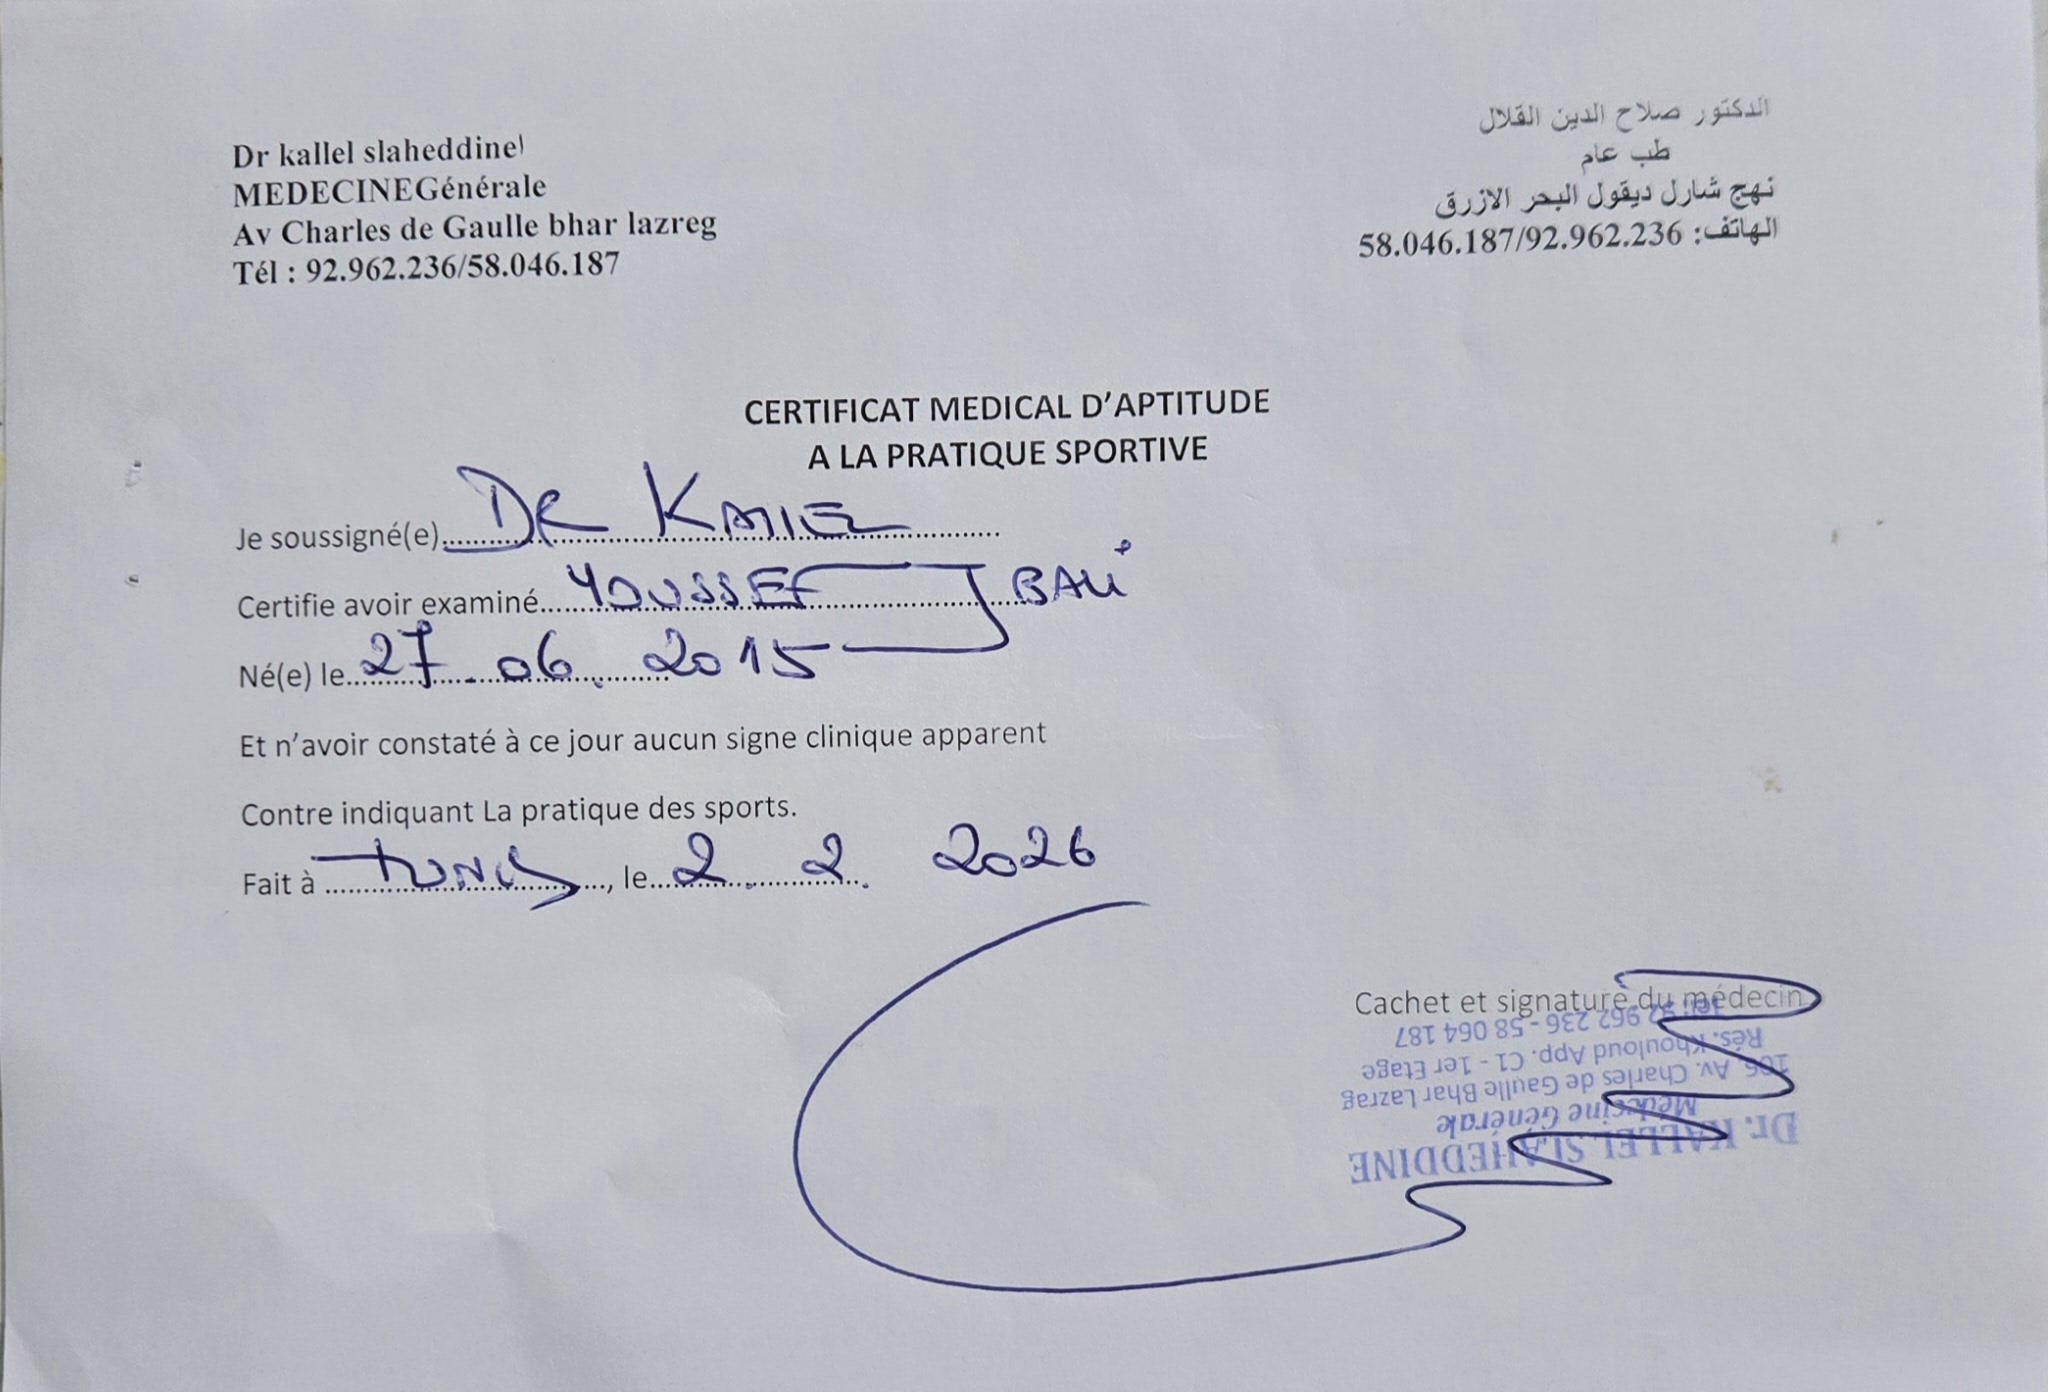 Dr kallel slaheddine
MEDECINEGénérale
Av Charles de Gaulle bhar lazreg
Tél : 92.962.236/58.046.187
الدكتور صلاح الدين القلال
طب عام
نهج شارل ديقول البحر الازرق
الهاتف: 58.046.187/92.962.236
CERTIFICAT MEDICAL D'APTITUDE
A LA PRATIQUE SPORTIVE
Je soussigné(e) DR KALLEL
Certifie avoir examiné YOUSSEF JBALI
Né(e) le 27.06.2015
Et n'avoir constaté à ce jour aucun signe clinique apparent
Contre indiquant La pratique des sports.
Fait à TUNIS, le 2.2.2026
Cachet et signature du médecin
Dr. KALLEL SLAHEDDINE
Médecine Générale
106, Av. Charles de Gaulle Bhar Lazrag
Rés. Khouloud App. C1 - 1er Etage
Tel: 92 962 236 - 58 064 187